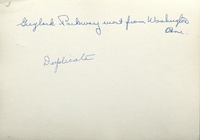 Guglock Parkway west from Washington
Ave.
Duplicate